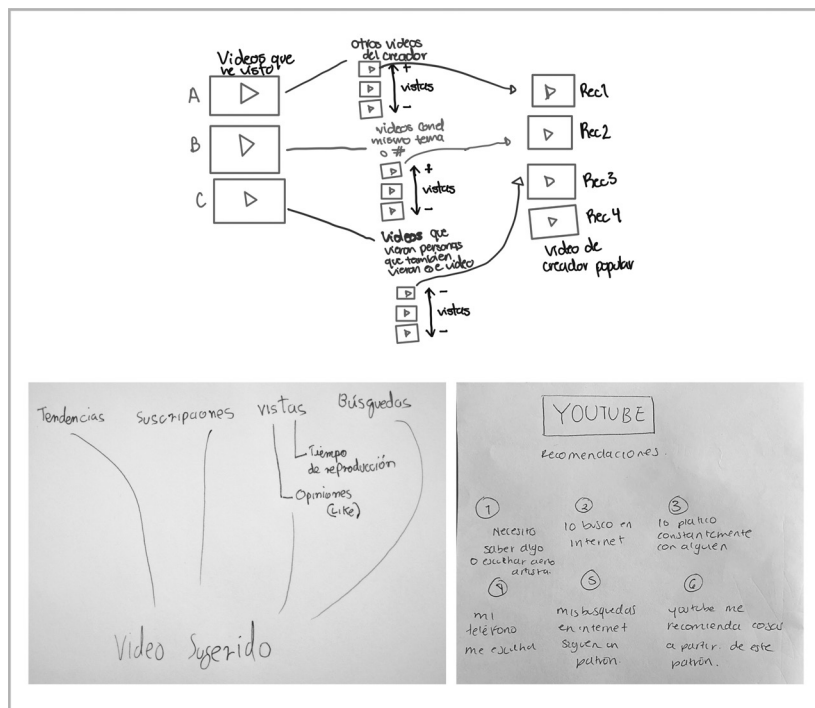 Videos que
he visto
A
B
C
otros videos
del creador
+
vistas
-
videos con el
mismo tema
o #
+
vistas
-
Videos que
vieron personas
que tambien
vieron ese video
-
vistas
-
Rec1
Rec2
Rec3
Rec4
video de
creador popular
Tendencias
Suscripciones
vistas
Búsquedas
Tiempo
de reproducción
Opiniones
(Like)
Video Sugerido
YOUTUBE
Recomendaciones.
1
Necesito
saber algo
o escuchar
artista.
2
lo busco en
internet
3
lo platico
constantemente
con alguien
4
mi
teléfono
me escucha
5
mis busquedas
en internet
siguen un
patrón.
6
youtube me
recomienda cosas
a partir de este
patrón.